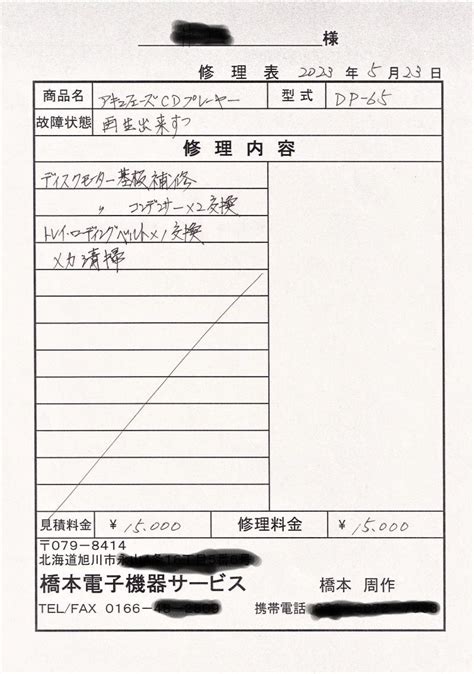 様
修理表 2023 年 5 月 23 日
商品名 アキュフェーズCDプレーヤー 型式 DP-65
故障状態 再生出来ずっ
修理内容
ディスクモーター基板補修
〃 コンデンサー×2交換
トレイ・ローディングベルト×1交換
メカ清掃
見積料金 ¥ 15.000 修理料金 ¥ 15.000
〒079-8414
北海道旭川市永山
橋本電子機器サービス 橋本 周作
TEL/FAX 0166-
携帯電話